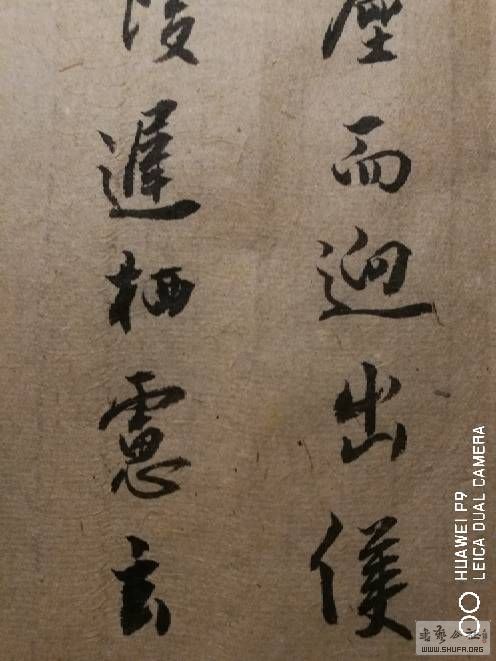 塵而迥出隻
陵遲栖慮玄
HUAWEI P9
LEICA DUAL CAMERA
書藝公社
WWW.SHUFA.ORG